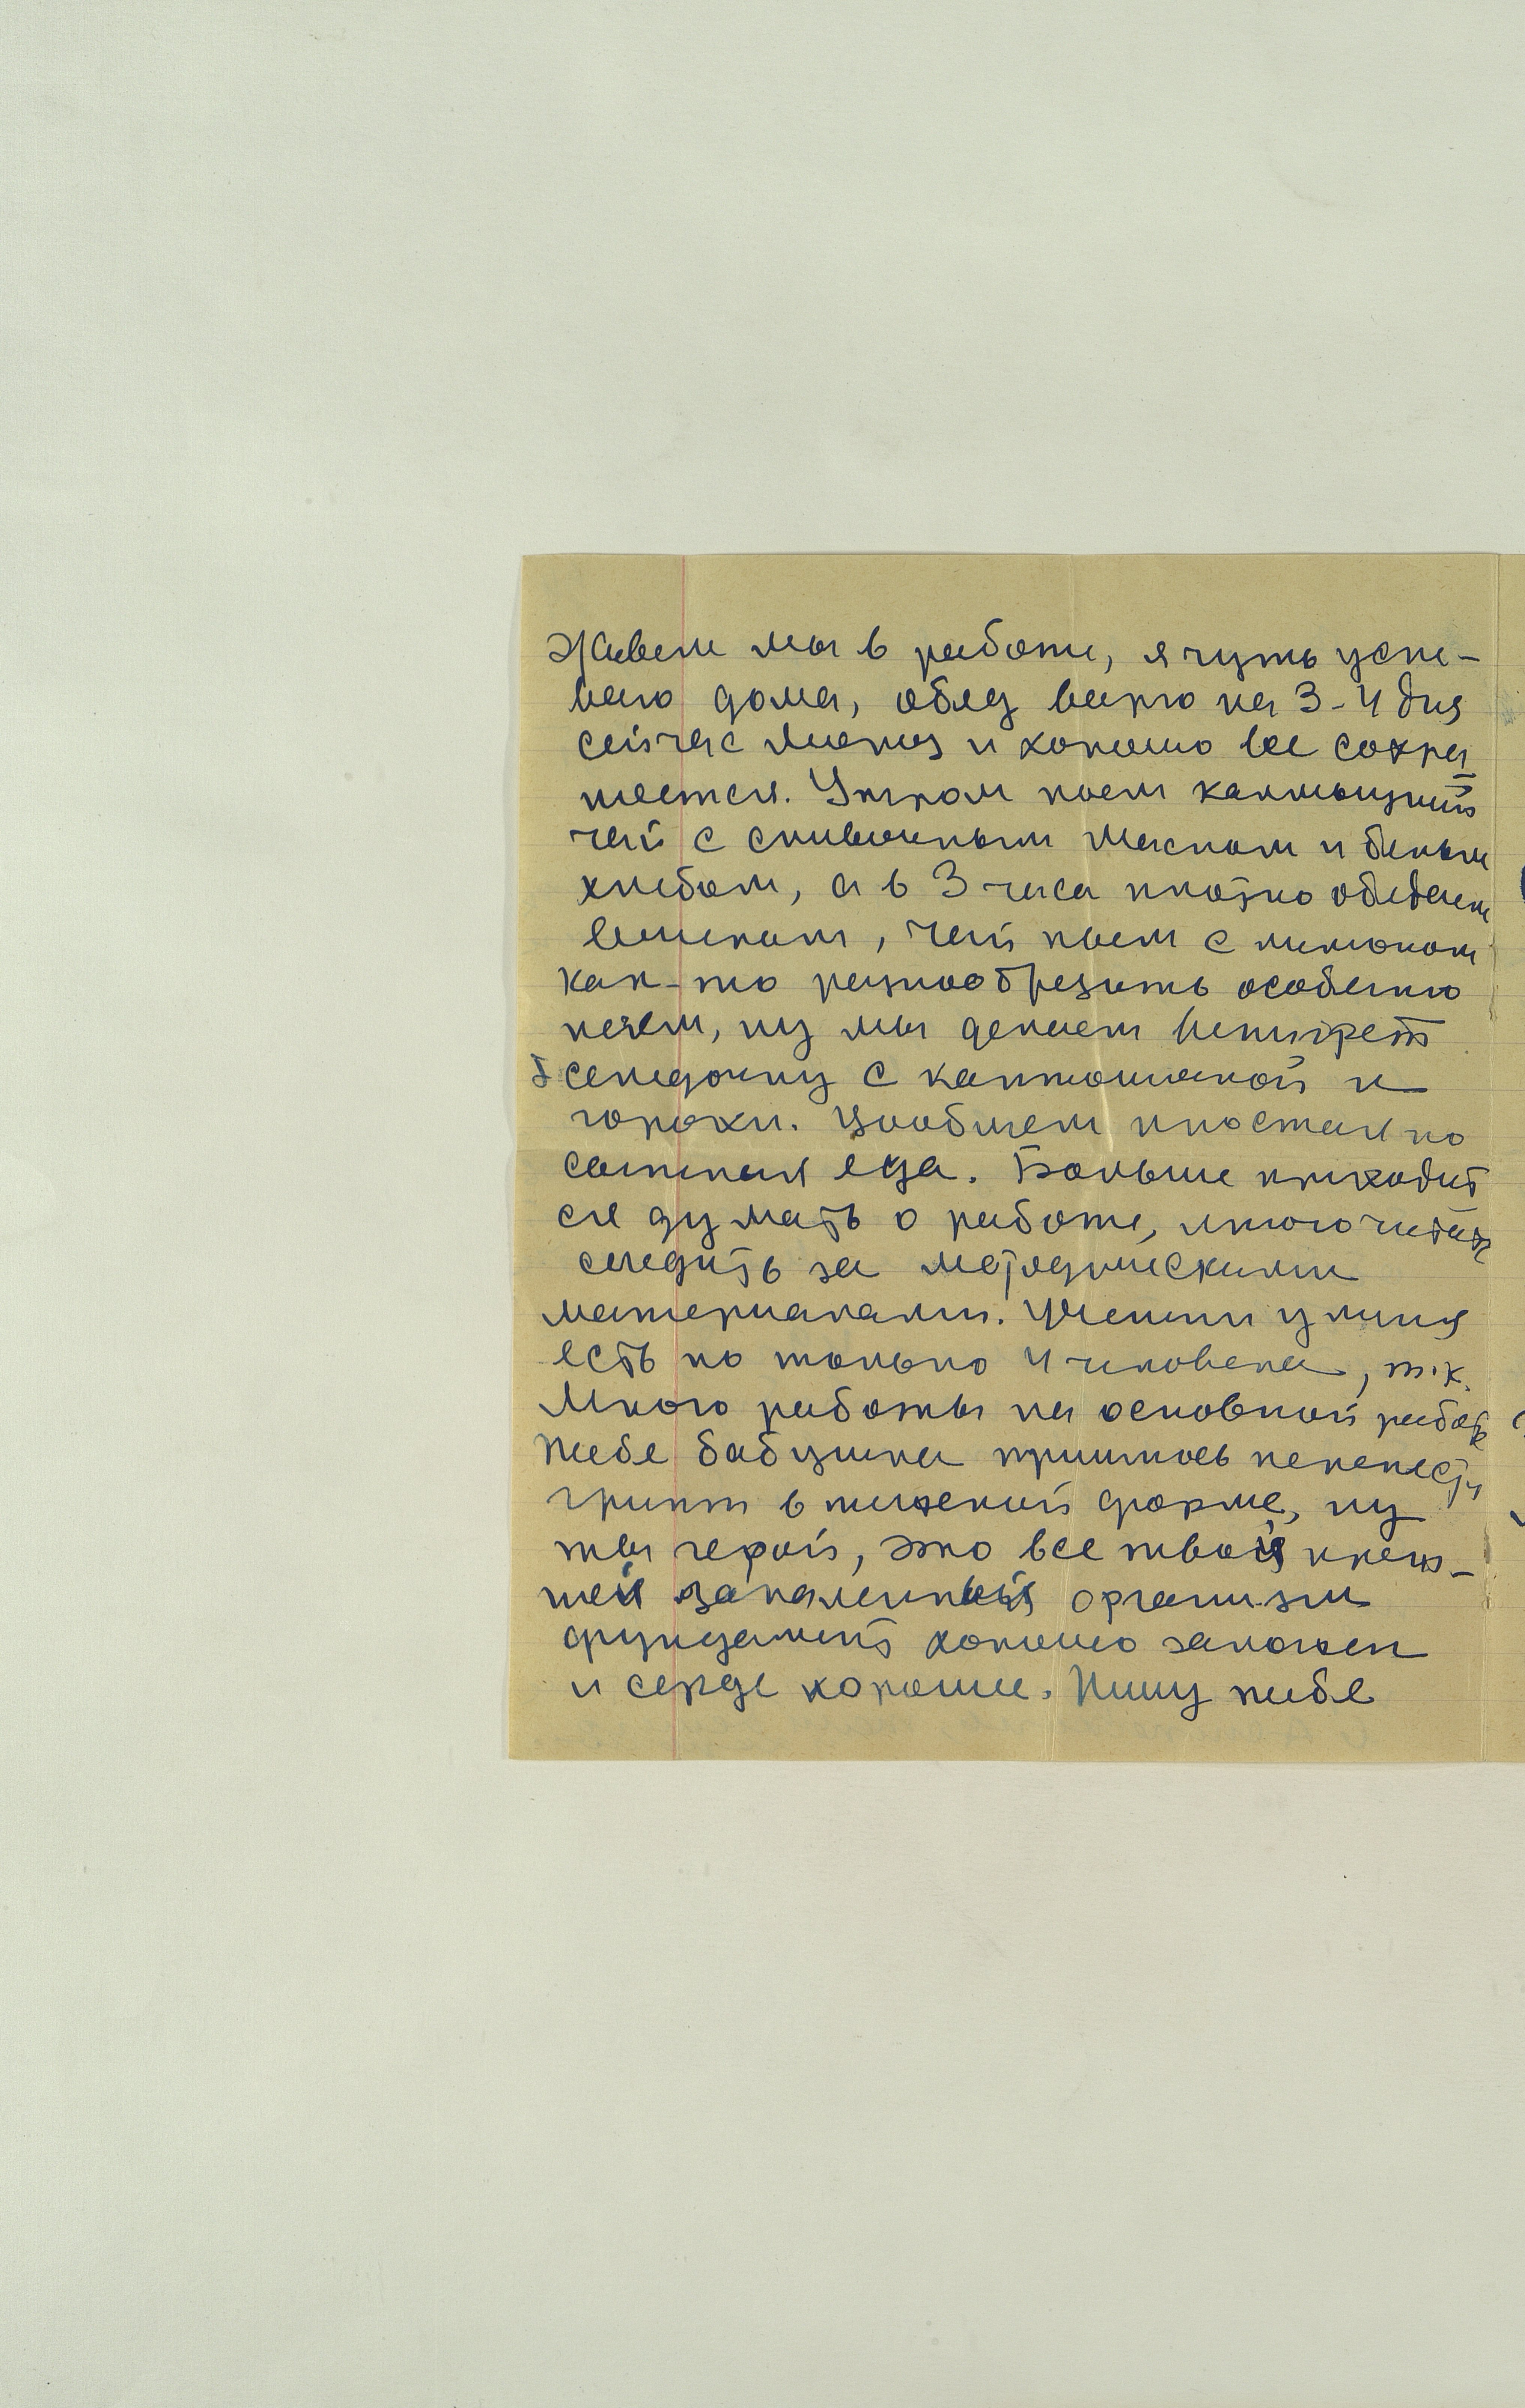 Живем мы в работе, я чуть успе-
ваю дома, обед варю на 3-4 дня
сейчас мороз и хорошо все сохра
няется. Утром пьем калмыцкий
чай с сливочным маслом и белым
хлебом, а в 3 часа плотно обедаем
вечером, чай пьем с лимоном
как-то разнообразить особенно
нечем, ну мы делаем винигрет
селедочку с картошкой и
горохи. Цообщем простая но
сытная еда. Больше приходит
ся думать о работе, много читать
следить за методическими
материалами. Ученики у меня
есть но только 4 человека, т.к.
много работы на основной работе
Тебе бабушка пришлось перенести
грипп в тяжелой форме, ну
ты герой, это все твой креп-
кий закаленный организм
фундамент хорошо заложен
и серде хорошее. Пишу тебе